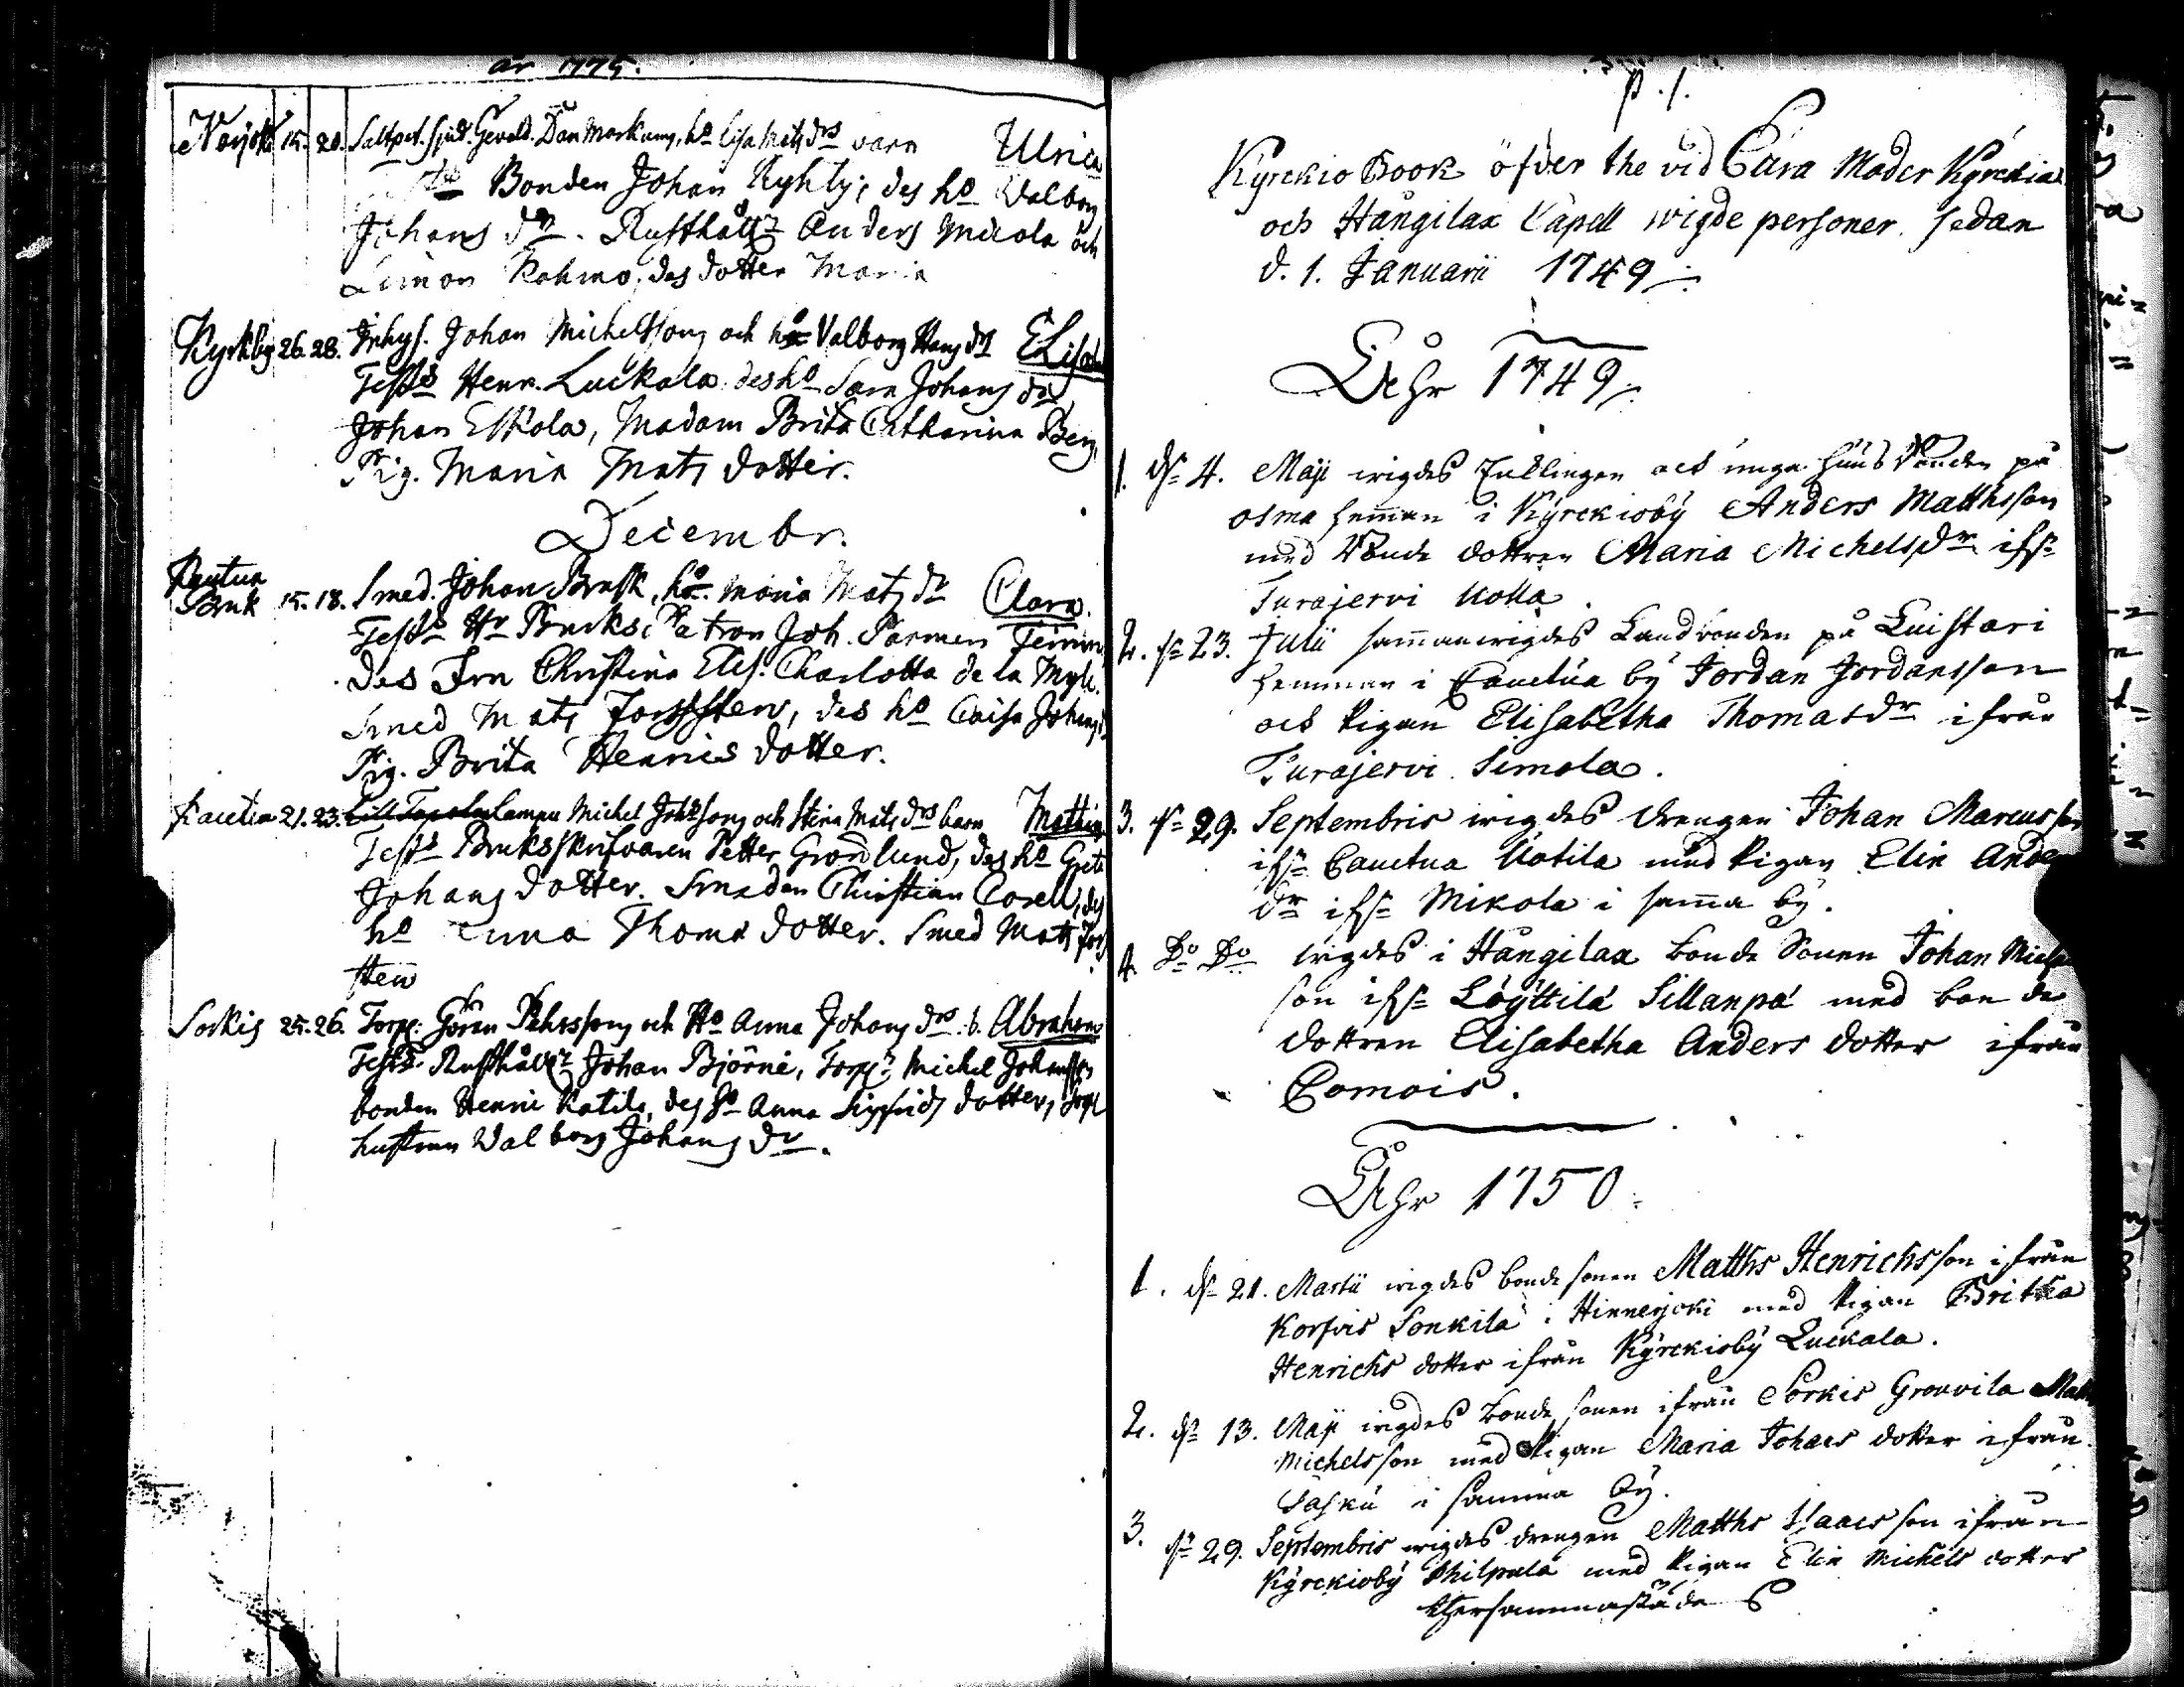 år 1775.
15. 20. Saltpet. sjud. Gevald. Dan Markamy, ho Lisa Mats drs barn Ulrica
Bonden Johan Kyhly, des ho Valborg
Johans dr. Rusthåll Anders Mickola och
Simon Rohmo, des dotter Maria
Kyrkby 26. 28. Inhys. Johan Michelssons och ho Valborg Hans drs Elisab
Test Henr. Luckala des ho Sara Johans dr
Johan Eskola, Madam Brita Catharina Berg
Pig. Maria Mats dotter.
Decembr.
Kautua
Bruk 15. 18. Smed. Johan Brusk, ho. Maria Mats dr Clara.
Test Hr Bruks Patron Joh. Parmen Timm
des Fru Christina Elis. Charlotta de la Myle.
Smed Mats Forssten, des ho Caisa Johans
Pig. Brita Henrics dotter.
Kautua 21. 23. Lampu Michel Johssons och Stina Mats drs barn Mathias
Test Bruksskrifvaren Petter Grönlund, des ho Greta
Johans dotter. Smeden Christian Corell, des
ho Anna Thoma dotter. Smed Mats Fors
sten
Sorkis 25. 26. Torp. Göran Pehrssons och Ho Anna Johans drs. b. Abraham
Test Rusthåll Johan Björni, Torp Michel Johansson
bonden Henric Katila, des ho Anna Sigfrids dotter, Torp
hustrun Valborg Johans dr.
p. 1.
Kyrckio Book öfver the vid Eura Moder Kyrckia
och Hångilax Capell wigde personer sedan
d. 1. Januarii 1749
Åhr 1749
1. d. 4. Maji wigdes Enklingen och unga husbonden på
osma hemman i Kyrckioby Anders Matthsson
med Bonde dottren Maria Michelsdr ifr
Turajervi Kolla.
2. d. 23. Julii sammanwigdes Landbonden på Luistari
hemman i Cauctua by Jordan Jordansson
och Pigan Elisabetha Thomasdr ifrån
Turajervi Simola.
3. d. 29. Septembris wigdes drengen Johan Marcusson
ifr Cauctua Uotila med Pigan Elin Anders
dr ifr Mikola i samma by.
4. Do Do wigdes i Hångilax bonde Sonen Johan Michel
son ifr Löyttilä Sillanpä med bonde
dottren Elisabetha Anders dotter ifrån
Comois.
Åhr 1750
1. d. 21. Martii wigdes bonde sonen Matths Henrichsson ifrån
Korfvis Sonkila i Hinnerjocki med Pigan Britha
Henrichs dotter ifrån Kyrckioby Luckala.
2. d. 13. Maji wigdes bonde sonen ifrån Sorkis Grouvila Matts
Michelsson med Pigan Maria Johans dotter ifrån
Säskü i samma by.
3. d. 29. Septembris wigdes drengen Matths Isaacs son ifrån
Kyrckioby Philpula med Pigan Elin Michels dotter
thersammastädes